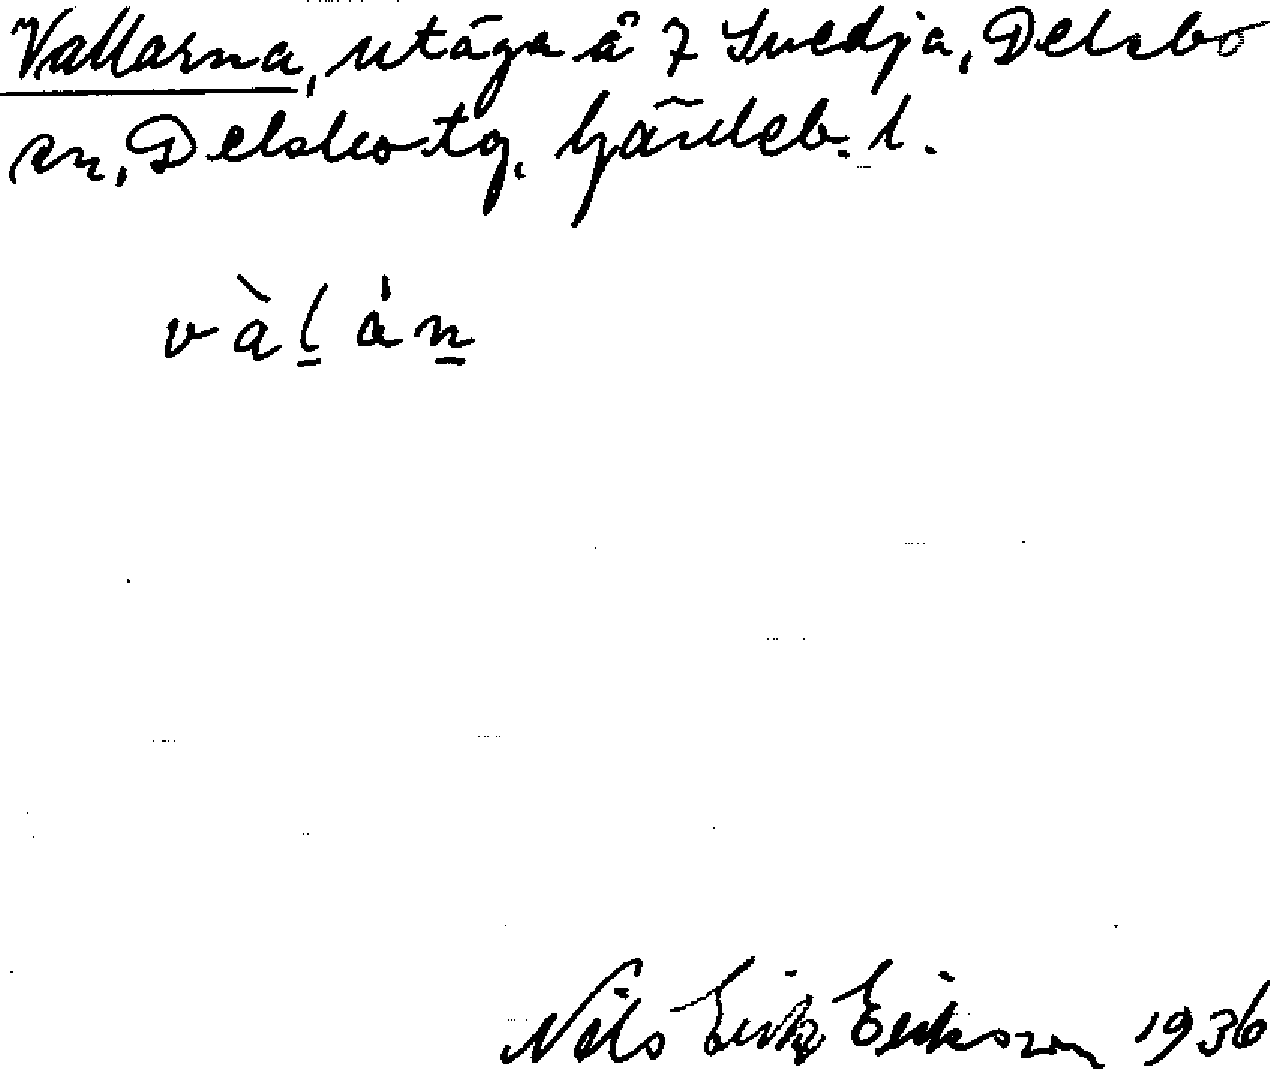 Vallarna, utäga å 7 Svedja, Delsbo
sn, Delsbo tg, Gävleb. l.
vàl̲ án̲
Nils Erik Erikson 1936